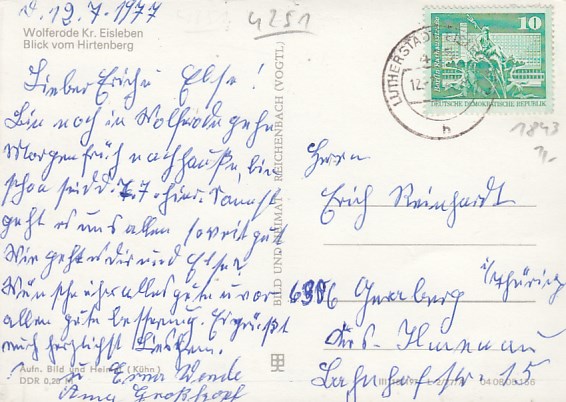 d. 12.7.1977
4251
Wolferode Kr. Eisleben
Blick vom Hirtenberg
Lieber Erich u Else!
Bin noch in Wolferode gehe
Morgen früh nachhause, bin
schon seid d. 7.7. hier. Sonst
geht es uns allen soweit gut
Wie geht es dir und Else?
Wünsche ihr alles gute u vor
allen gute besserung. Es grüßt
euch herzlichst
u. Erna
Anna Großkopf
Aufn. Bild und Heimat (Kühn)
DDR 0,20 M
BILD UND HEIMAT REICHENBACH (VOGTL)
LUTHERSTADT
12.
h
10
DEUTSCHE DEMOKRATISCHE REPUBLIK
1843
Herrn
Erich Reinhardt
i/Thüring
6306 Geraberg
Krs. Ilmenau
Bahnhofstr. 15